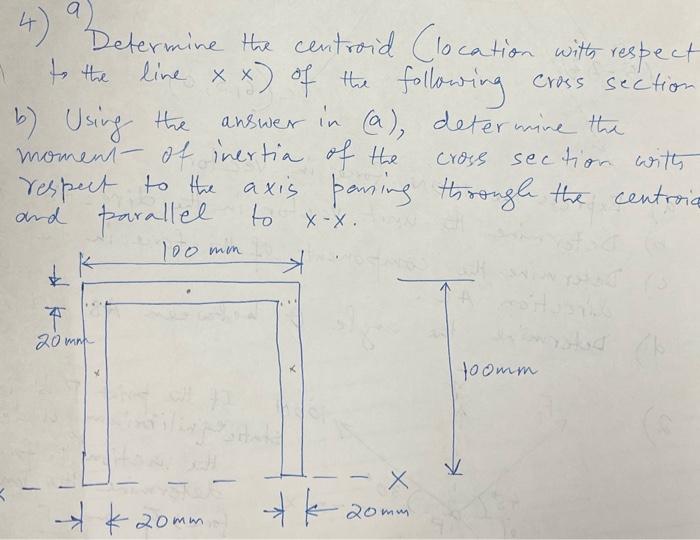 4) a)
Determine the centroid (location with respect
to the line x x) of the following cross section
b) Using the answer in (a), determine the
moment of inertia of the cross section with
respect to the axis passing through the centroid
and parallel to x-x.
100 mm
20 mm
100mm
x x
x
20 mm
20 mm